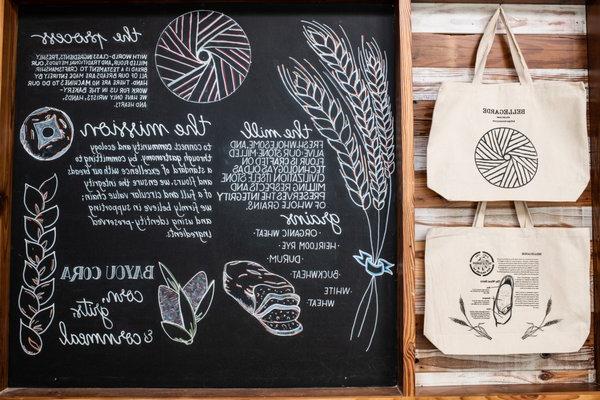 the process
WITH WORLD-CLASS INGREDIENTS, FRESHLY
MILLED FLOUR, AND TRADITIONAL METHODS, OUR
BREAD IS A TESTAMENT TO CRAFTSMANSHIP
ALL OF OUR BREADS ARE MADE ENTIRELY BY
HAND. THERE ARE NO MACHINES TO DO OUR
WORK FOR US IN THE BAKERY-
ONLY WRISTS, HANDS,
AND
HEARTS
the mission
to connect community and ecology
through gastronomy. by committing to
a standard of excellence with our breads
and flours, and we ensure the integrity
of a full and circular value chain;
we firmly believe in supporting
and using identity-preserved
ingredients.
BAYOU CORA
corn,
grits,
& cornmeal
the mill
FRESH, WHOLESOME, AND
ALIVE, OUR STONE-MILLED
FLOUR CRAFTED ON
TECHNOLOGY AS OLD AS
CIVILIZATION ITSELF. STONE
MILLING RESPECTS AND
PRESERVES THE INTEGRITY
OF WHOLE GRAINS.
grains
· ORGANIC WHEAT
· HEIRLOOM RYE
· DURUM
· BUCKWHEAT
· WHITE
WHEAT
BELLEGARDE
BELLEGARDE